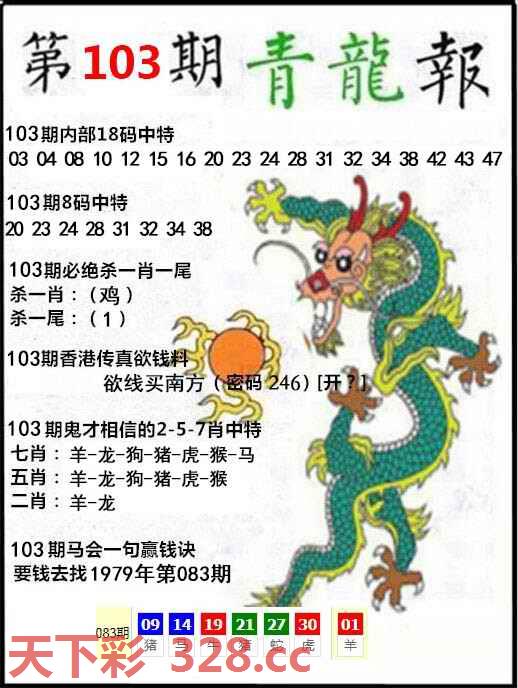 第103期 青龍報
103期内部18码中特
03 04 08 10 12 15 16 20 23 24 28 31 32 34 38 42 43 47
103期8码中特
20 23 24 28 31 32 34 38
103期必绝杀一肖一尾
杀一肖：（鸡）
杀一尾：（1）
103期香港传真欲钱料
欲线买南方（密码 246）[开？]
103期鬼才相信的2-5-7肖中特
七肖：羊-龙-狗-猪-虎-猴-马
五肖：羊-龙-狗-猪-虎-猴
二肖：羊-龙
103期马会一句赢钱诀
要钱去找1979年第083期
083期 09 14 19 21 27 30 01
猪 马 牛 猪 蛇 虎 羊
天下彩 328.cc